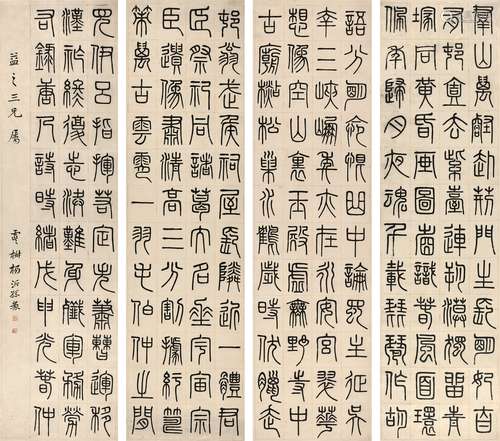 羣山萬壑赴荊門生長明妃尚
有邨一去紫臺連朔漠獨留青
塚向黃昏畫圖省識春風面環
佩空歸月夜魂千載琵琶作胡
語分明怨恨曲中論蜀主征吳
幸三峽崩年亦在永安宮翠華
想像空山裏玉殿虛無野寺中
古廟杉松巢水鶴歲時伏臘走
邨翁武侯祠屋長鄰近一體君
臣祭祀同諸葛大名垂宇宙宗
臣遺像肅清高三分割據紆籌
策萬古雲霄一羽毛伯仲之間
見伊呂指揮若定失蕭曹運移
漢祚終復志決難身殲軍務勞
錄唐人詩時
益之三兄屬
楊沂孫